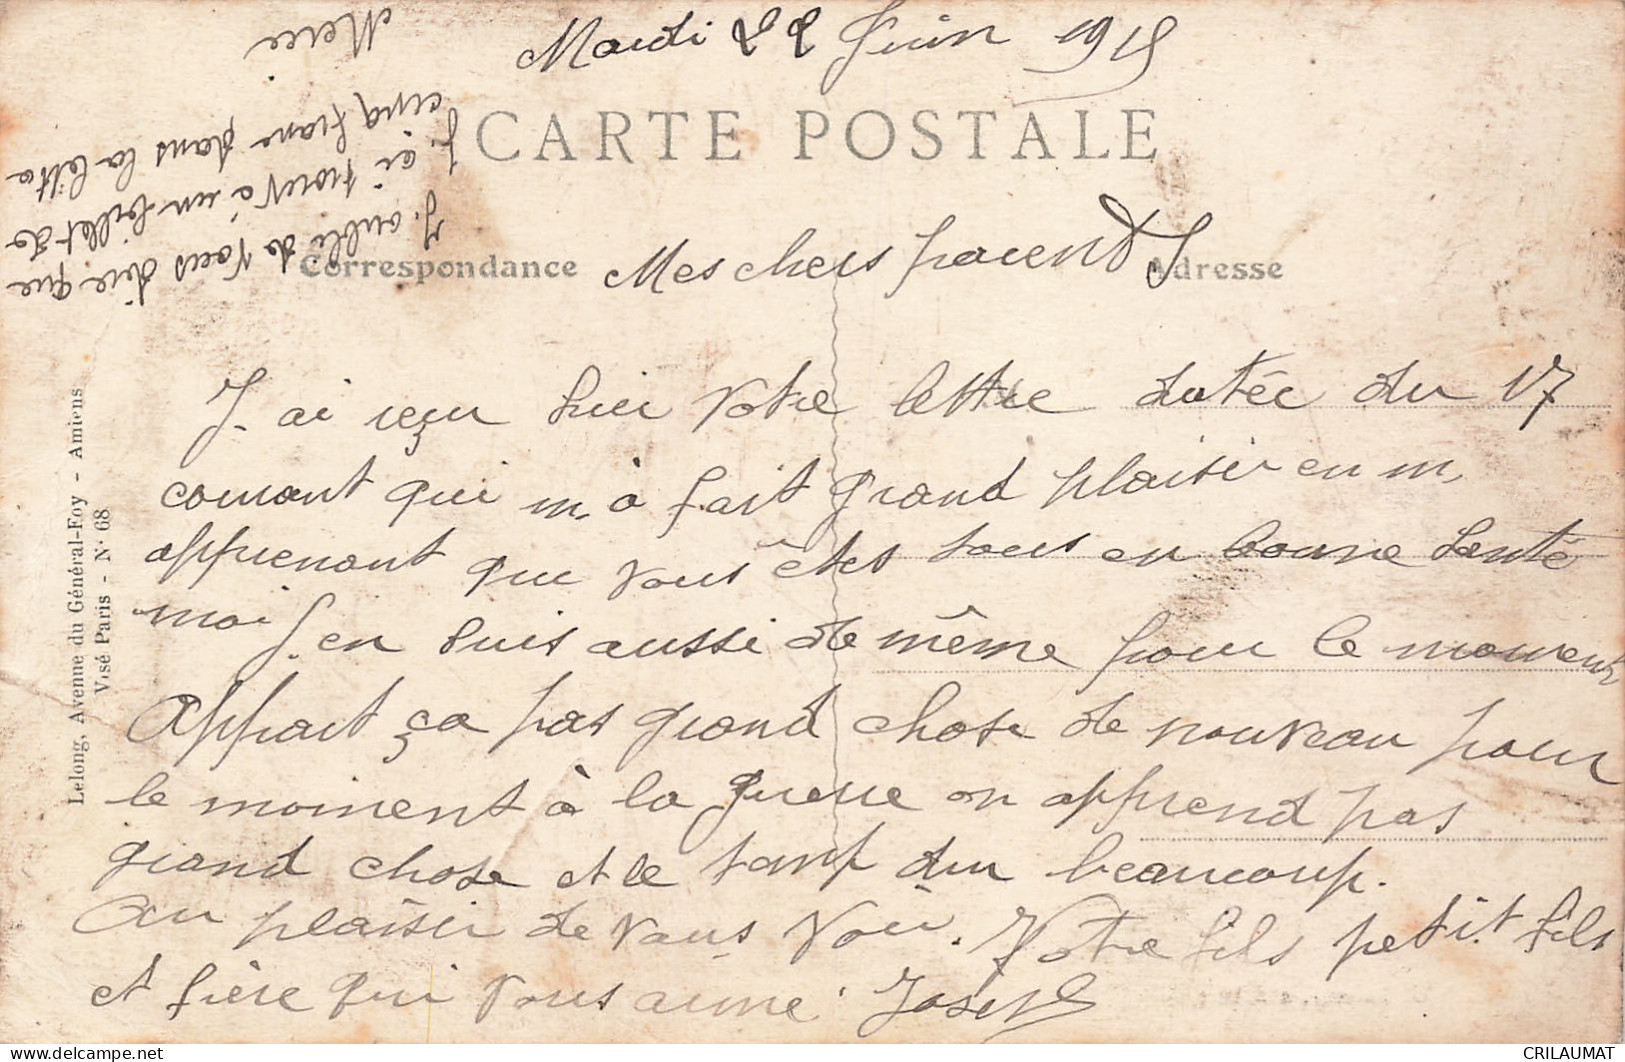 Mardi 22 Juin 1915
CARTE POSTALE
Correspondance
Adresse
Mes chers parents
J. ai reçu hier votre lettre datée du 17
courant qui m, a fait grand plaisir en m,
apprenant que vous êtes tous en bonne santé
moi J. en suis aussi de même pour le moment
Appart ça pas grand chose de nouveau pour
le moment à la guerre on apprend pas
grand chose et le temp dur beaucoup.
Au plaisir de vous voir. Votre fils petit fils
et frère qui vous aime Joseph
J. oublie de vous dire que
j. ai trouvé un billet de
cinq franc dans la lettre
Merci
Lelong, Avenue du Général-Foy - Amiens
Visé Paris - N° 68
CRILAUMAT